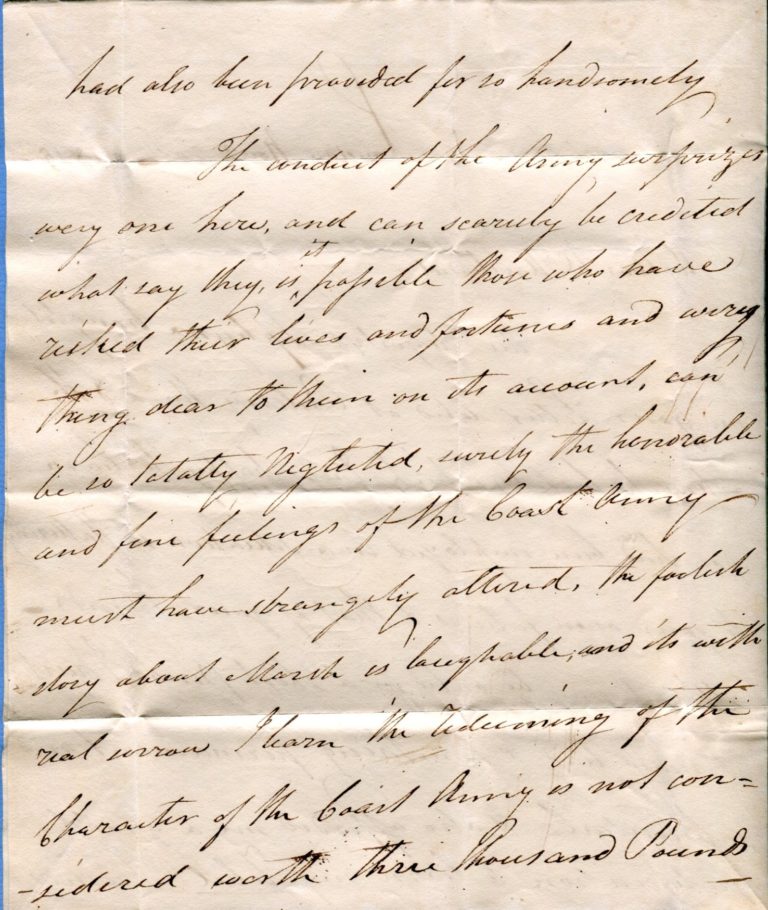 had also been provided for so handsomely
The conduct of the Army surprizes
every one here, and can scarcely be credited
what say they, is it possible those who have
risked their lives and fortunes and every
thing dear to them on its account, can
be so totally Neglected, surely the honorable
and fine feelings of the Coast Army
must have strangely altered, the foolish
story about Marsh is laughable, and its with
real sorrow I learn the redeeming of the
Character of the Coast Army is not con=
-sidered worth three Thousand Pounds